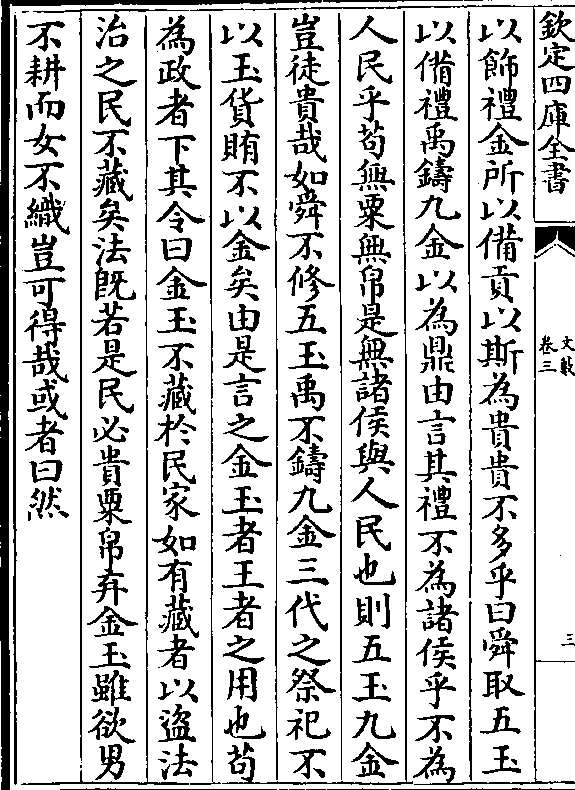 欽定四庫全書
文藪
卷三
三
以飾禮金所以備貢以斯為貴貴不多乎曰舜取五玉
以備禮禹鑄九金以為鼎由言其禮不為諸侯乎不為
人民乎苟無粟無帛是無諸侯與人民也則五玉九金
豈徒貴哉如舜不修五玉禹不鑄九金三代之祭祀不
以玉貨賄不以金矣由是言之金玉者王者之用也苟
為政者下其令曰金玉不藏於民家如有藏者以盜法
治之民不藏矣法既若是民必貴粟帛弃金玉雖欲男
不耕而女不織豈可得哉或者曰然